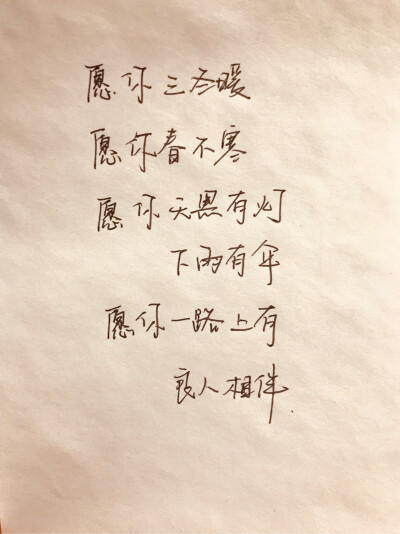 愿你三冬暖
愿你春不寒
愿你天黑有灯
下雨有伞
愿你一路上有
良人相伴.